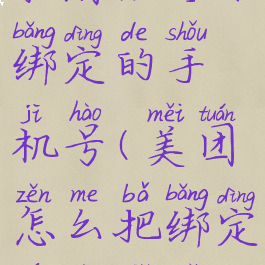 bǎng dìng de shǒu
绑定的手
jī hào měi tuán
机号(美团
zěn me bǎ bǎng dìng
怎么把绑定